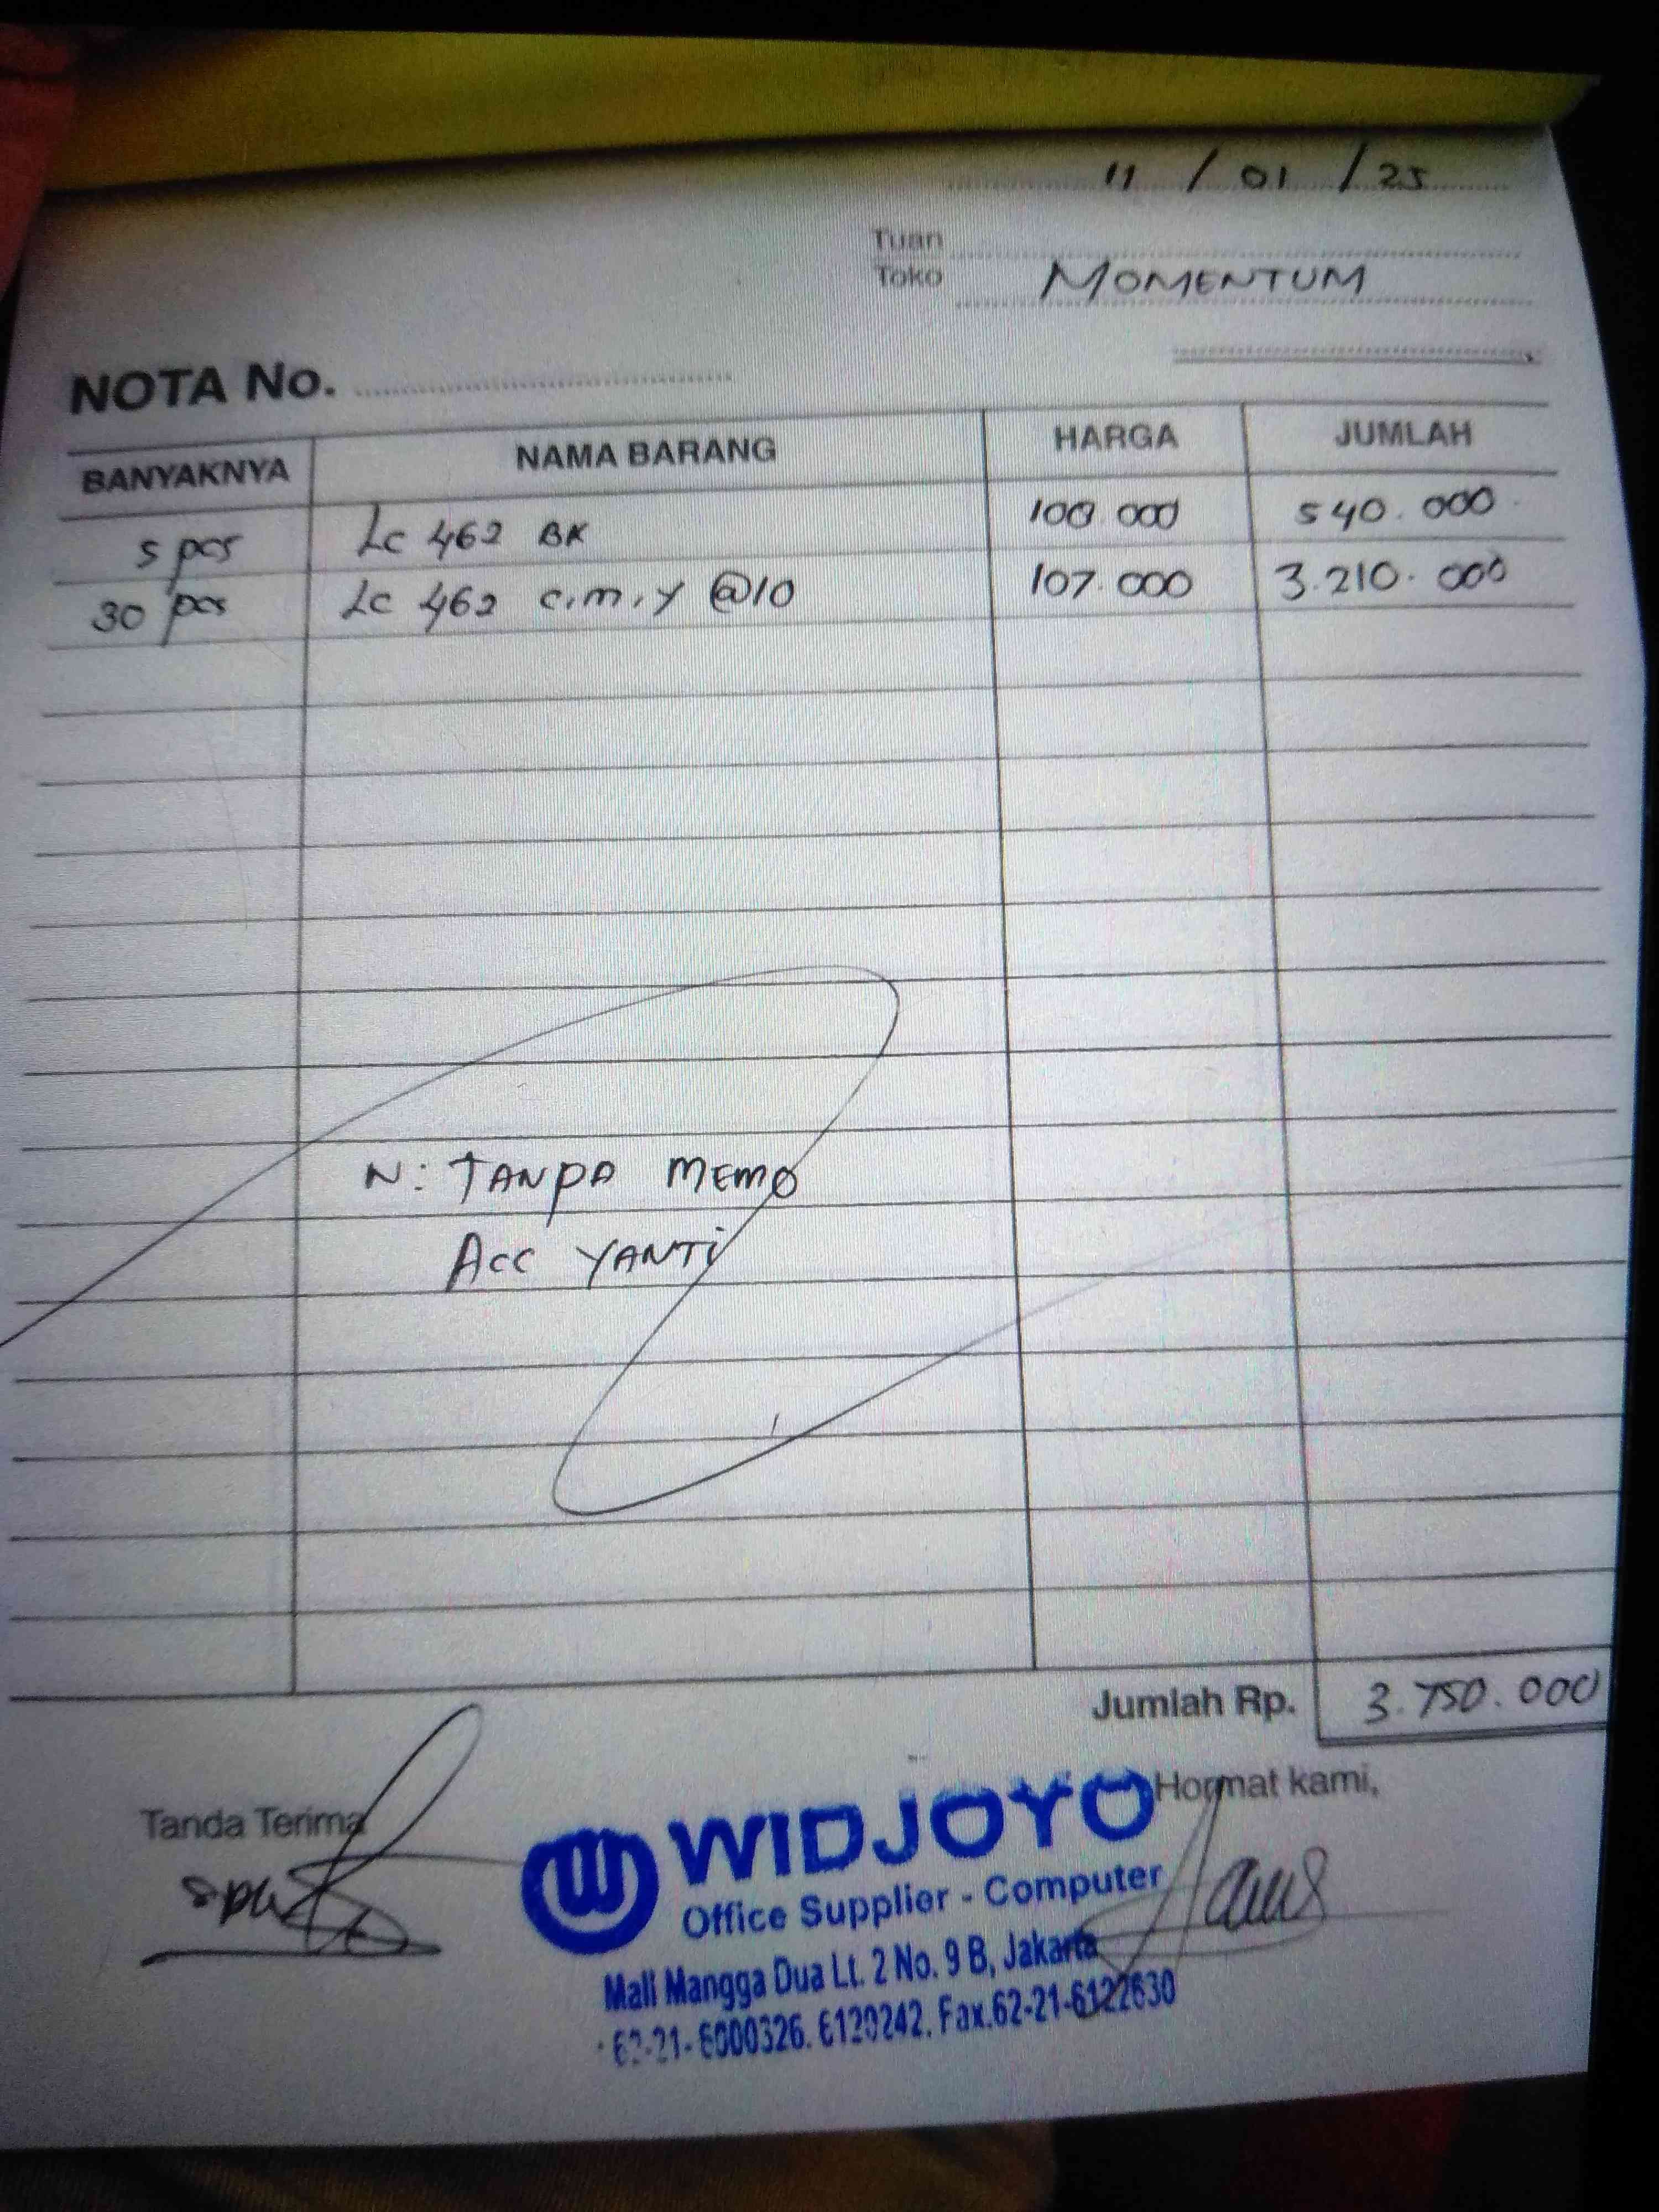 11 / 01 / 25
Tuan
Toko MOMENTUM
NOTA No.
BANYAKNYA NAMA BARANG HARGA JUMLAH
5 pcs Lc 462 BK 108.000 540.000
30 pcs Lc 462 c.m.y @10 107.000 3.210.000
N: TANPA MEMO
Acc YANTI
Jumlah Rp. 3.750.000
Tanda Terima Hormat kami,
WIDJOYO
Office Supplier - Computer
Mall Mangga Dua Lt. 2 No. 9 B, Jakarta
62-21-6000326. 6120242. Fax.62-21-6122630